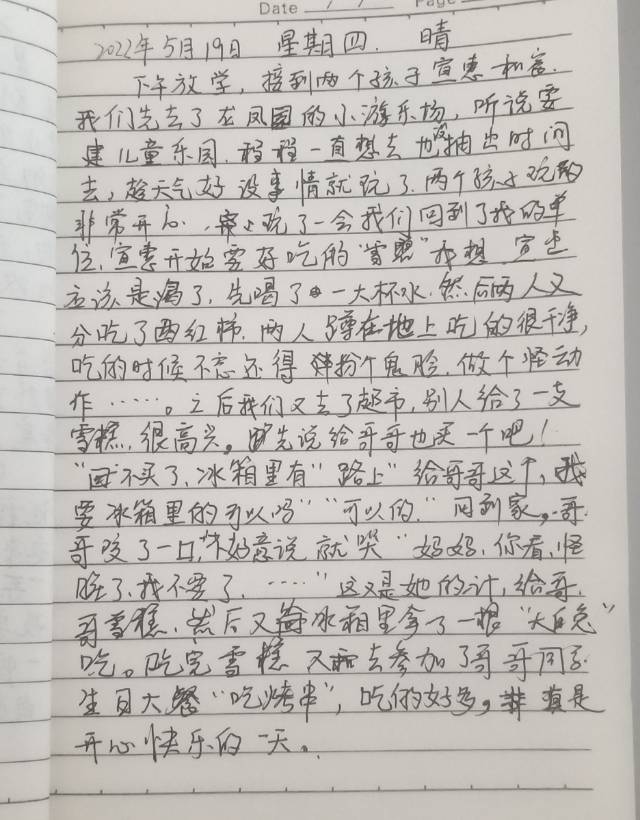 Date / / Page
2022年5月19日 星期四. 晴
下午放学,接到两个孩子宣惠和
我们先去了龙凤园的小游乐场,听说要
建儿童乐园.程程一直想去也没抽出时间
去,趁天气好没事情就玩了.两个孩子玩的
非常开心.玩了一会我们回到了我的单
位,宣惠开始要好吃的"雪糕"我想 宣惠
应该是渴了,先喝了一大杯水.然后两人又
分吃了西红柿.两人蹲在地上吃的很干净,
吃的时候不忘还得扮个鬼脸.做个怪动
作……。之后我们又去了超市,别人给了一支
雪糕,很高兴。先说给哥哥也买一个吧!
"不买了,冰箱里有"路上"给哥哥这个,我
要冰箱里的可以吗""可以的."回到家,哥
哥咬了一口,好意说 就哭"妈妈,你看,怪
脏了,我不要了.……"这又是她的计,给哥
哥雪糕,然后又冰箱里拿了一根"大白兔"
吃。吃完雪糕 又去参加了哥哥同学
生日大餐"吃烤串",吃的好多,真是
开心快乐的一天。